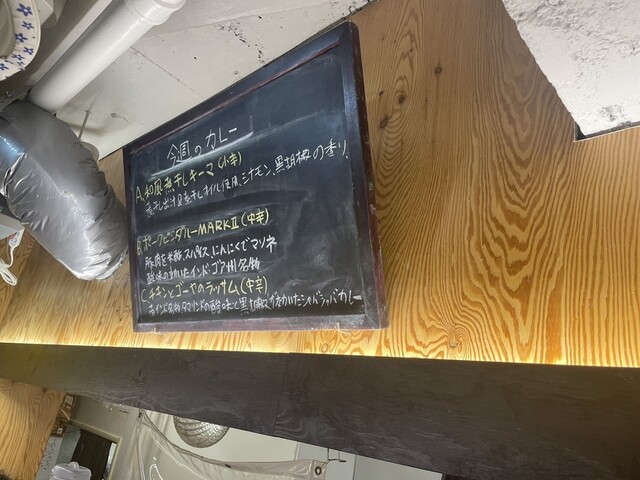 今週のカレー
A. 和風煮干しキーマ(小辛)
煮干し出汁&煮干しオイル使用、シナモン、黒胡椒の香り。
B. ポークビンダルーMARKⅡ(中辛)
豚肉を米酢、スパイス、にんにくでマリネ
酸味の効いたインド・ゴア州名物
C. チキンとゴーヤのラッサム(中辛)
南インド名物 タマリンドの酸味と黒胡椒 カレー